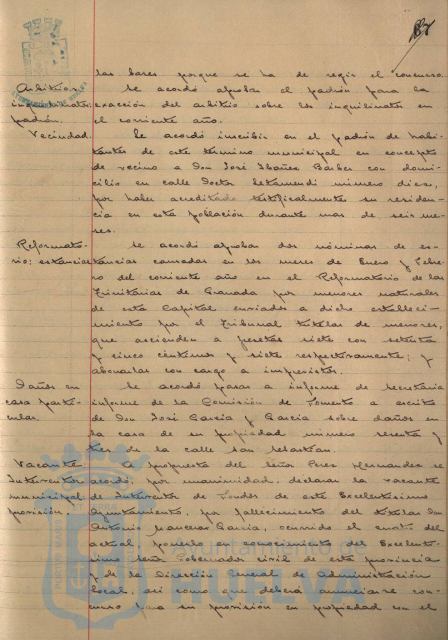 87
las bases porque se ha de regir el concurso.
Arbitrios. Se acordó aprobar el padrón para la
inquilinatos, exacción del arbitrio sobre los inquilinatos en
padrón. el corriente año.
Vecindad. Se acordó inscribir en el padrón de habi-
tantes de este término municipal en concepto
de vecino a don José Ibañez Barber con domi-
cilio en calle Doctor Letamendi número diez,
por haber acreditado testificalmente su residen-
cia en esta población durante mas de seis me-
ses.
Reformato- Se acordó aprobar dos nóminas de es-
rio; estancias tancias causadas en los meses de Enero y Febre-
ro del corriente año en el Reformatorio de las
Trinitarias de Granada por menores naturales
de esta Capital enviados a dicho estableci-
miento por el Tribunal tutelar de menores,
que ascienden a pesetas siete con setenta
y cinco céntimos y siete respectivamente; y
abonarlas con cargo a imprevistos.
Daños en Se acordó pasar a informe de Secretaría
casa parti- informe de la Comisión de Fomento a escrito
cular. de don José García y García sobre daños en
la casa de su propiedad número sesenta y
tres de la calle San Sebastián.
Vacante A propuesta del señor Perez Hernandez se
Interventor acordó, por unanimidad, declarar la vacante
municipal de Interventor de Fondos de este Excelentísimo
provisión. Ayuntamiento, por fallecimiento del titular don
Antonio García, ocurrido el cuatro del
actual, ponerlo en conocimiento del Excelentí-
simo señor Gobernador civil de esta provincia
y de la Dirección General de Administración
local, así como que deberá anunciarse con-
curso para su provisión en propiedad con el
Ayuntamiento de
HUELVA